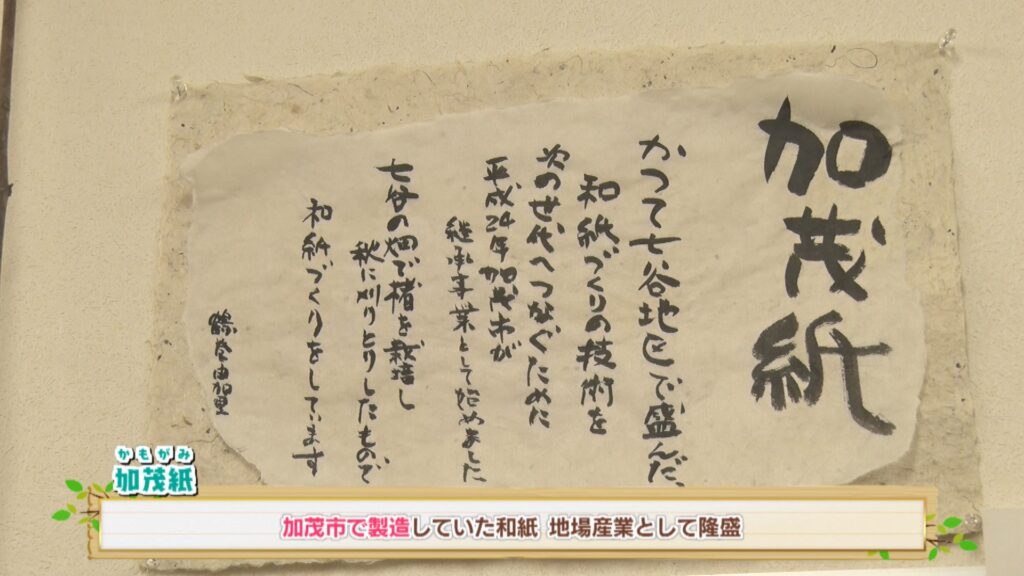 加茂紙
かつて七谷地区で盛んだ、
和紙づくりの技術を
次の世代へつなぐために
平成24年加茂市が
継承事業として始めました
七谷の畑で楮を栽培し
秋に刈りとりしたもので
和紙づくりをしています
鶴巻由加里
かもがみ
加茂紙
加茂市で製造していた和紙 地場産業として隆盛